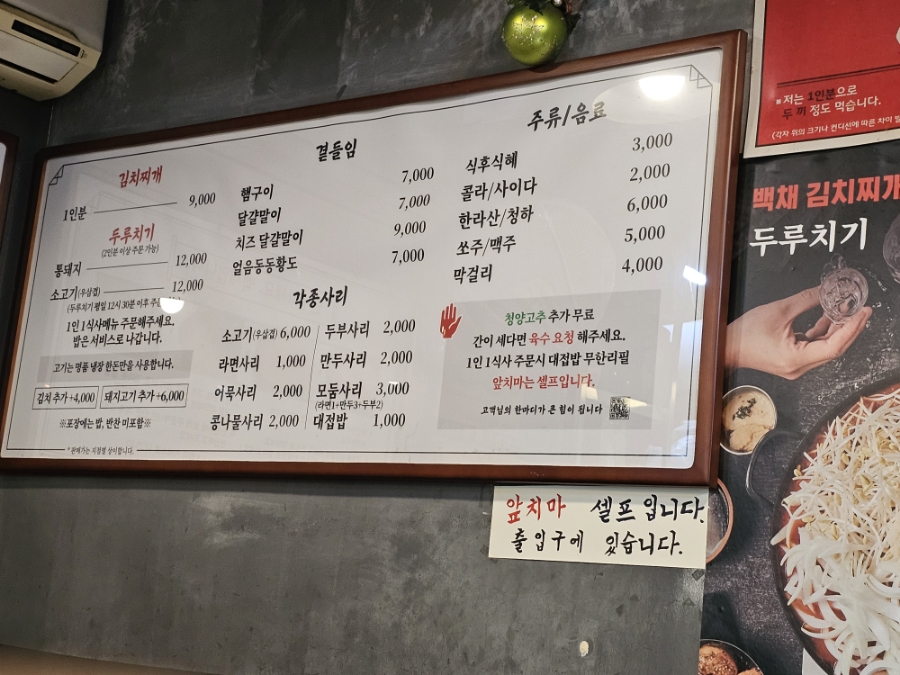 김치찌개
1인분 9,000
두루치기
(2인분 이상 주문 가능)
통돼지 12,000
소고기(우삼겹) 12,000
(두루치기 평일 12시 30분 이후 주문
1인 1식사메뉴 주문해주세요.
밥은 서비스로 나갑니다.
고기는 명품 냉장 한돈만을 사용합니다.
김치 추가+4,000 돼지고기 추가+6,000
※포장에는 밥, 반찬 미포함※
*판매가는 지점별 상이합니다.
곁들임
햄구이 7,000
달걀말이 7,000
치즈 달걀말이 9,000
얼음동동황도 7,000
각종사리
소고기(우삼겹) 6,000
라면사리 1,000
어묵사리 2,000
콩나물사리 2,000
두부사리 2,000
만두사리 2,000
모둠사리 3,000
(라면1+만두3+두부2)
대접밥 1,000
주류/음료
식후식혜 3,000
콜라/사이다 2,000
한라산/청하 6,000
쏘주/맥주 5,000
막걸리 4,000
청양고추 추가 무료
간이 세다면 육수 요청 해주세요.
1인 1식사 주문시 대접밥 무한리필
앞치마는 셀프입니다.
고객님의 한마디가 큰 힘이 됩니다
앞치마 셀프입니다.
출입구에 있습니다.
■ 저는 1인분으로
두 끼 정도 먹습니다.
(각자 위의 크기나 컨디션에 따른 차이
백채 김치찌개
두루치기